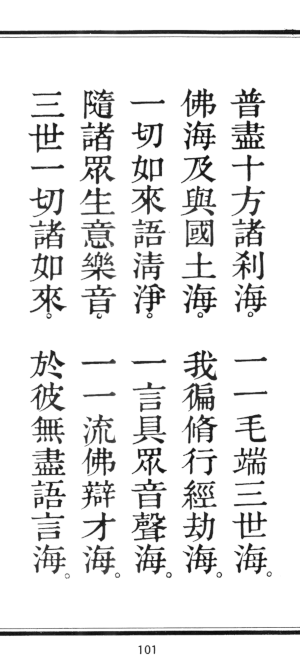 普盡十方諸剎海。一一毛端三世海。
佛海及與國土海。我徧脩行經劫海。
一切如來語清淨。一言具眾音聲海。
隨諸眾生意樂音。一一流佛辯才海。
三世一切諸如來。於彼無盡語言海。
101